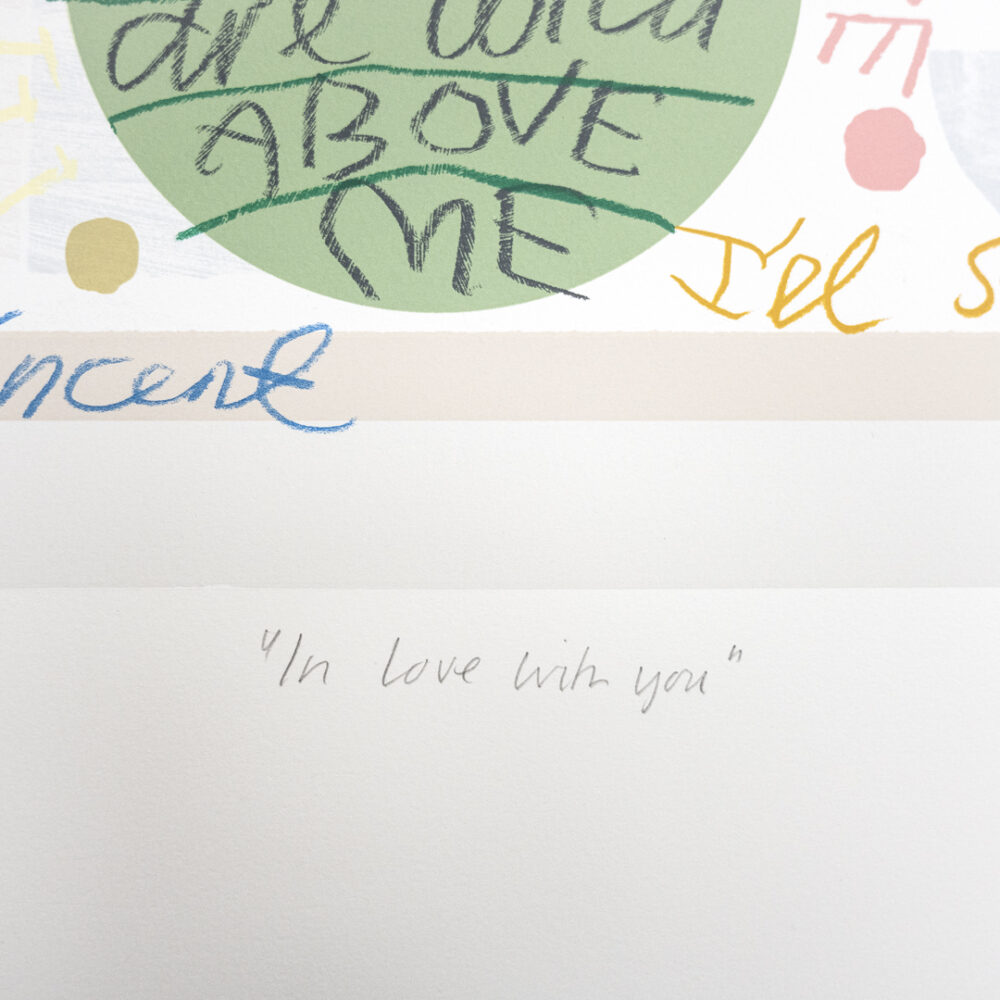 are wild
ABOVE
ME
I'll s
ncent
"In love with you"